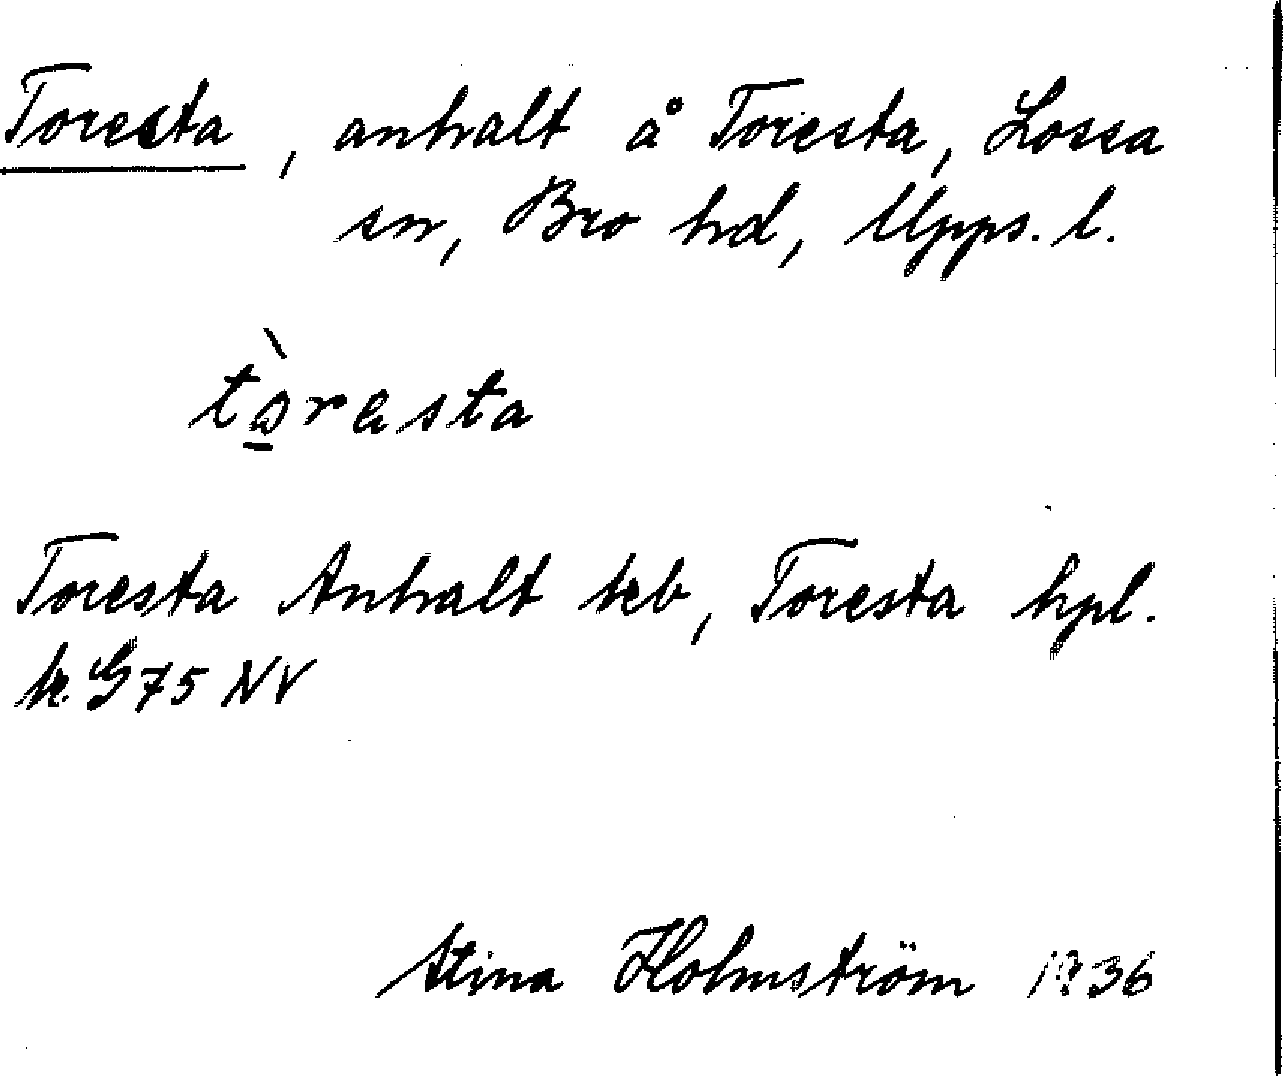 Toresta, anhalt å Toresta, Lossa
sn, Bro hd, Upps. l.
tòresta
Toresta Anhalt keb, Toresta hpl.
k. G 75 NV
Stina Holmström 1936